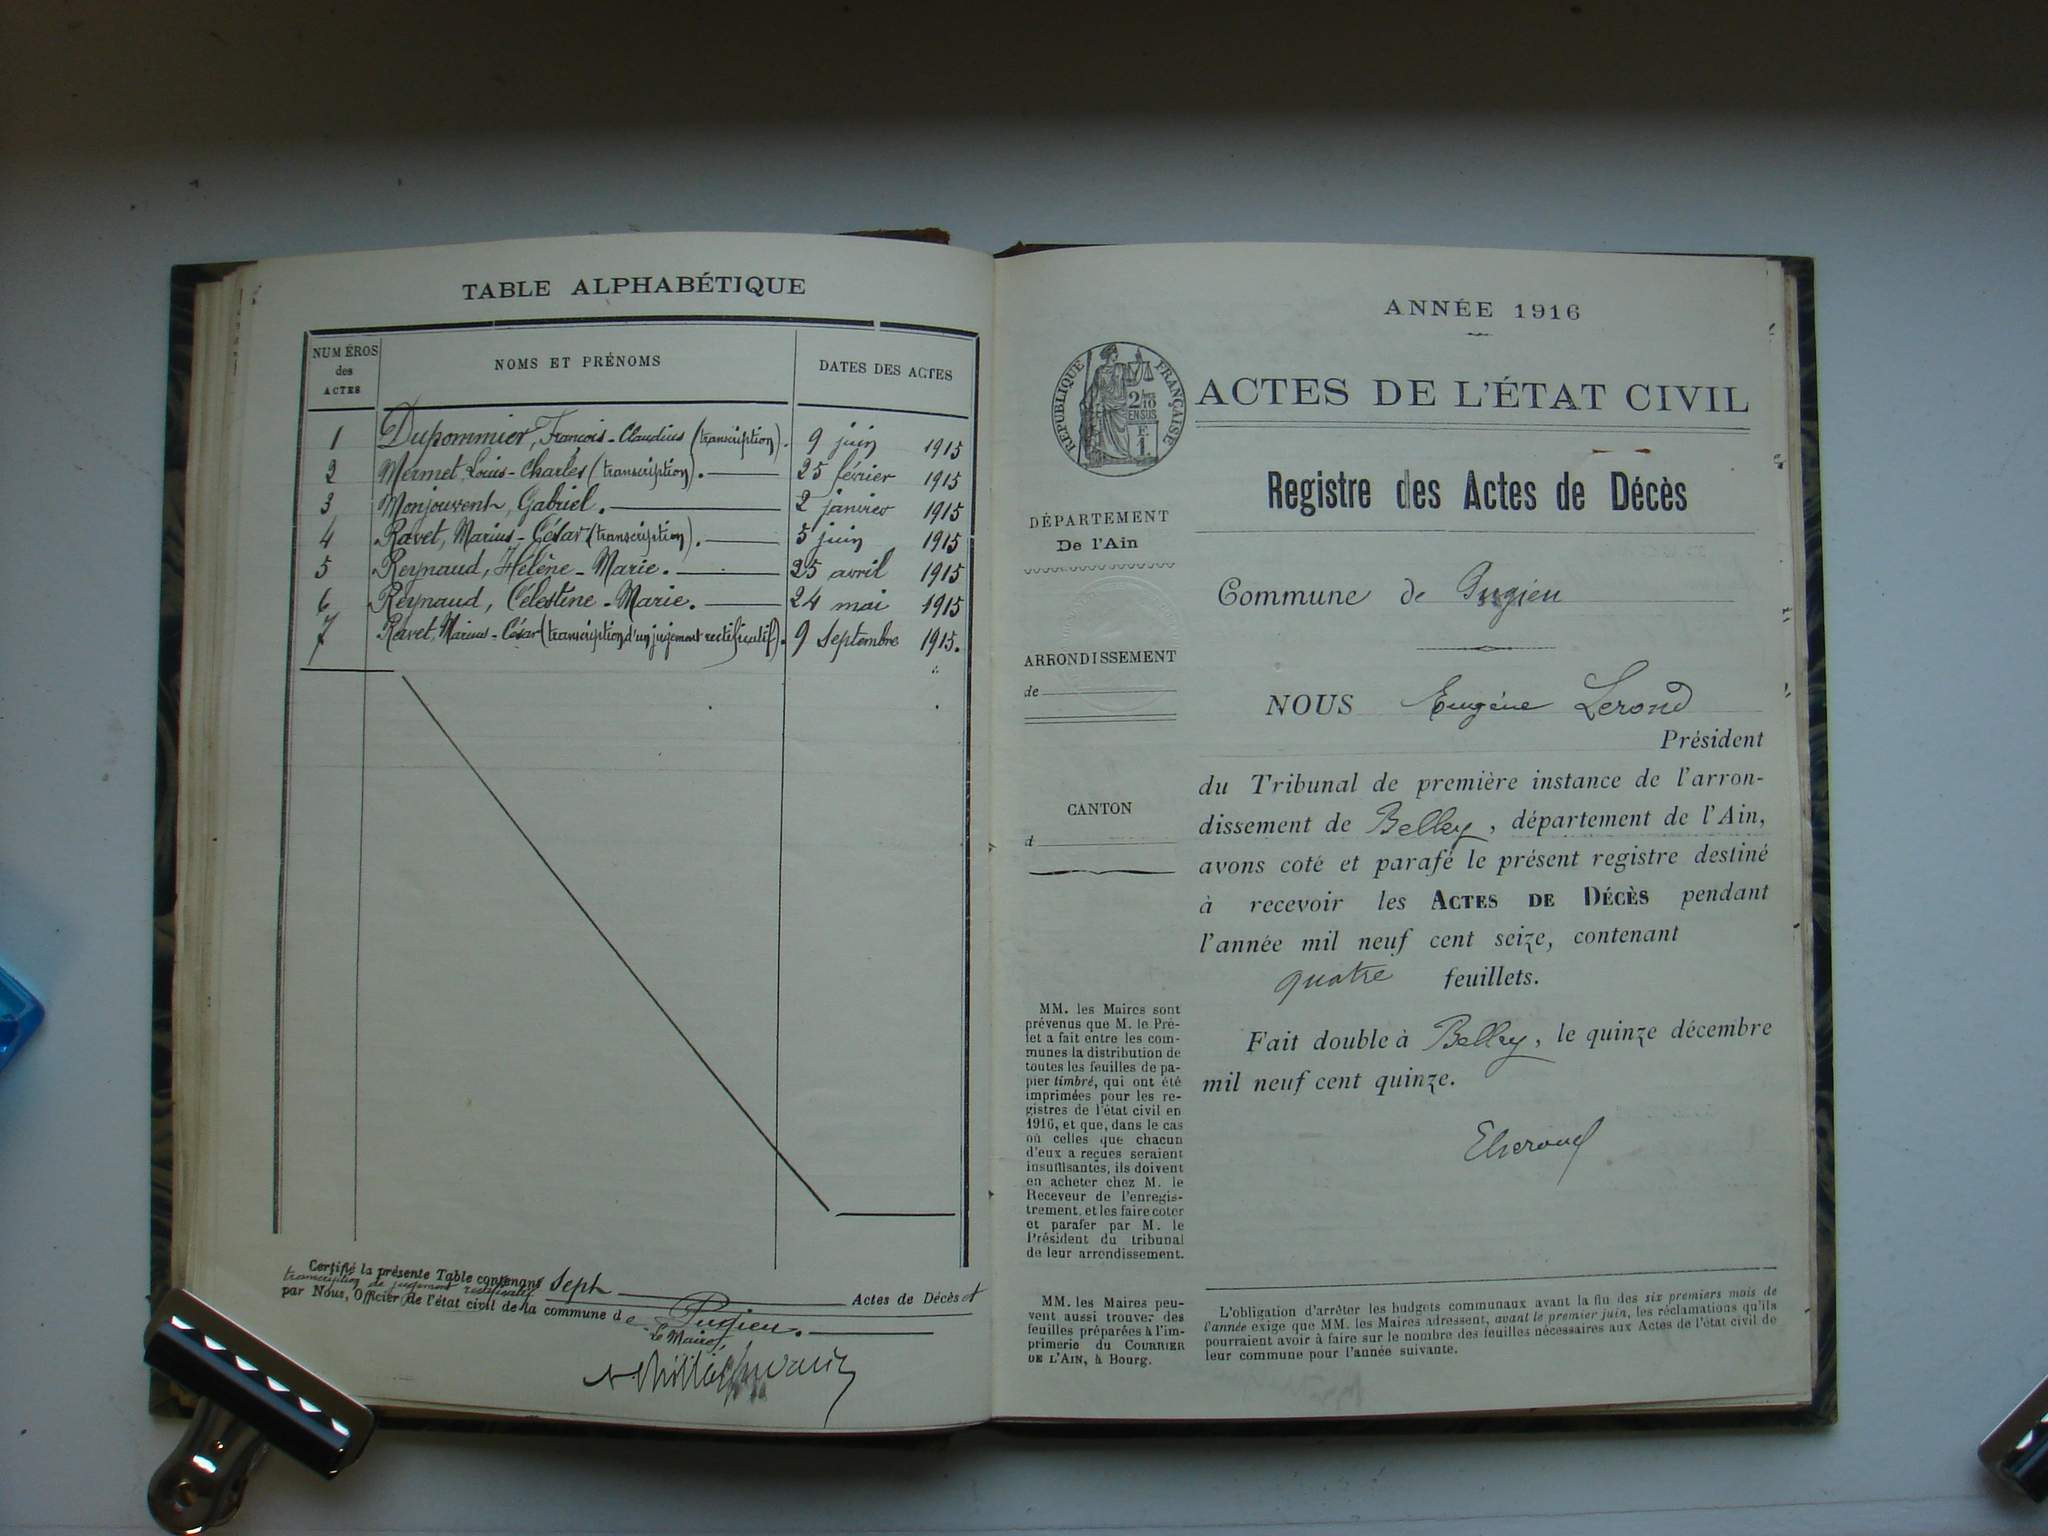 TABLE ALPHABÉTIQUE
NUMÉROS des ACTES
NOMS ET PRÉNOMS
DATES DES ACTES
1 Dupommier, François-Claudius (transcription). 9 juin 1915
2 Mermet, Louis-Charles (transcription). 25 février 1915
3 Monjouvent, Gabriel. 2 janvier 1915
4 Ravet, Marius-César (transcription). 5 juin 1915
5 Reynaud, Hélène-Marie. 25 avril 1915
6 Reynaud, Célestine-Marie. 24 mai 1915
7 Ravet, Marius-César (transcription d'un jugement rectificatif). 9 Septembre 1915.
Certifié la présente Table contenant Sept Actes de Décès et
transcription de jugement rectificatif
par Nous, Officier de l'état civil de la commune de Pugieu.
Le Maire,
ANNÉE 1916
RÉPUBLIQUE FRANÇAISE
2/10
EN SUS
ACTES DE L'ÉTAT CIVIL
Registre des Actes de Décès
DÉPARTEMENT
De l'Ain
ARRONDISSEMENT
de
CANTON
d
Commune de Pugieu
NOUS Eugène Lerond
Président
du Tribunal de première instance de l'arron-
dissement de Belley, département de l'Ain,
avons coté et parafé le présent registre destiné
à recevoir les ACTES DE DÉCÈS pendant
l'année mil neuf cent seize, contenant
quatre feuillets.
Fait double à Belley, le quinze décembre
mil neuf cent quinze.
MM. les Maires sont
prévenus que M. le Pré-
fet a fait entre les com-
munes la distribution de
toutes les feuilles de pa-
pier timbré, qui ont été
imprimées pour les re-
gistres de l'état civil en
1916, et que, dans le cas
où celles que chacun
d'eux a reçues seraient
insuffisantes, ils doivent
en acheter chez M. le
Receveur de l'enregis-
trement, et les faire coter
et parafer par M. le
Président du tribunal
de leur arrondissement.
MM. les Maires peu-
vent aussi trouver des
feuilles préparées à l'im-
primerie du COURRIER
DE L'AIN, à Bourg.
L'obligation d'arrêter les budgets communaux avant la fin des six premiers mois de
l'année exige que MM. les Maires adressent, avant le premier juin, les réclamations qu'ils
pourraient avoir à faire sur le nombre des feuilles nécessaires aux Actes de l'état civil de
leur commune pour l'année suivante.